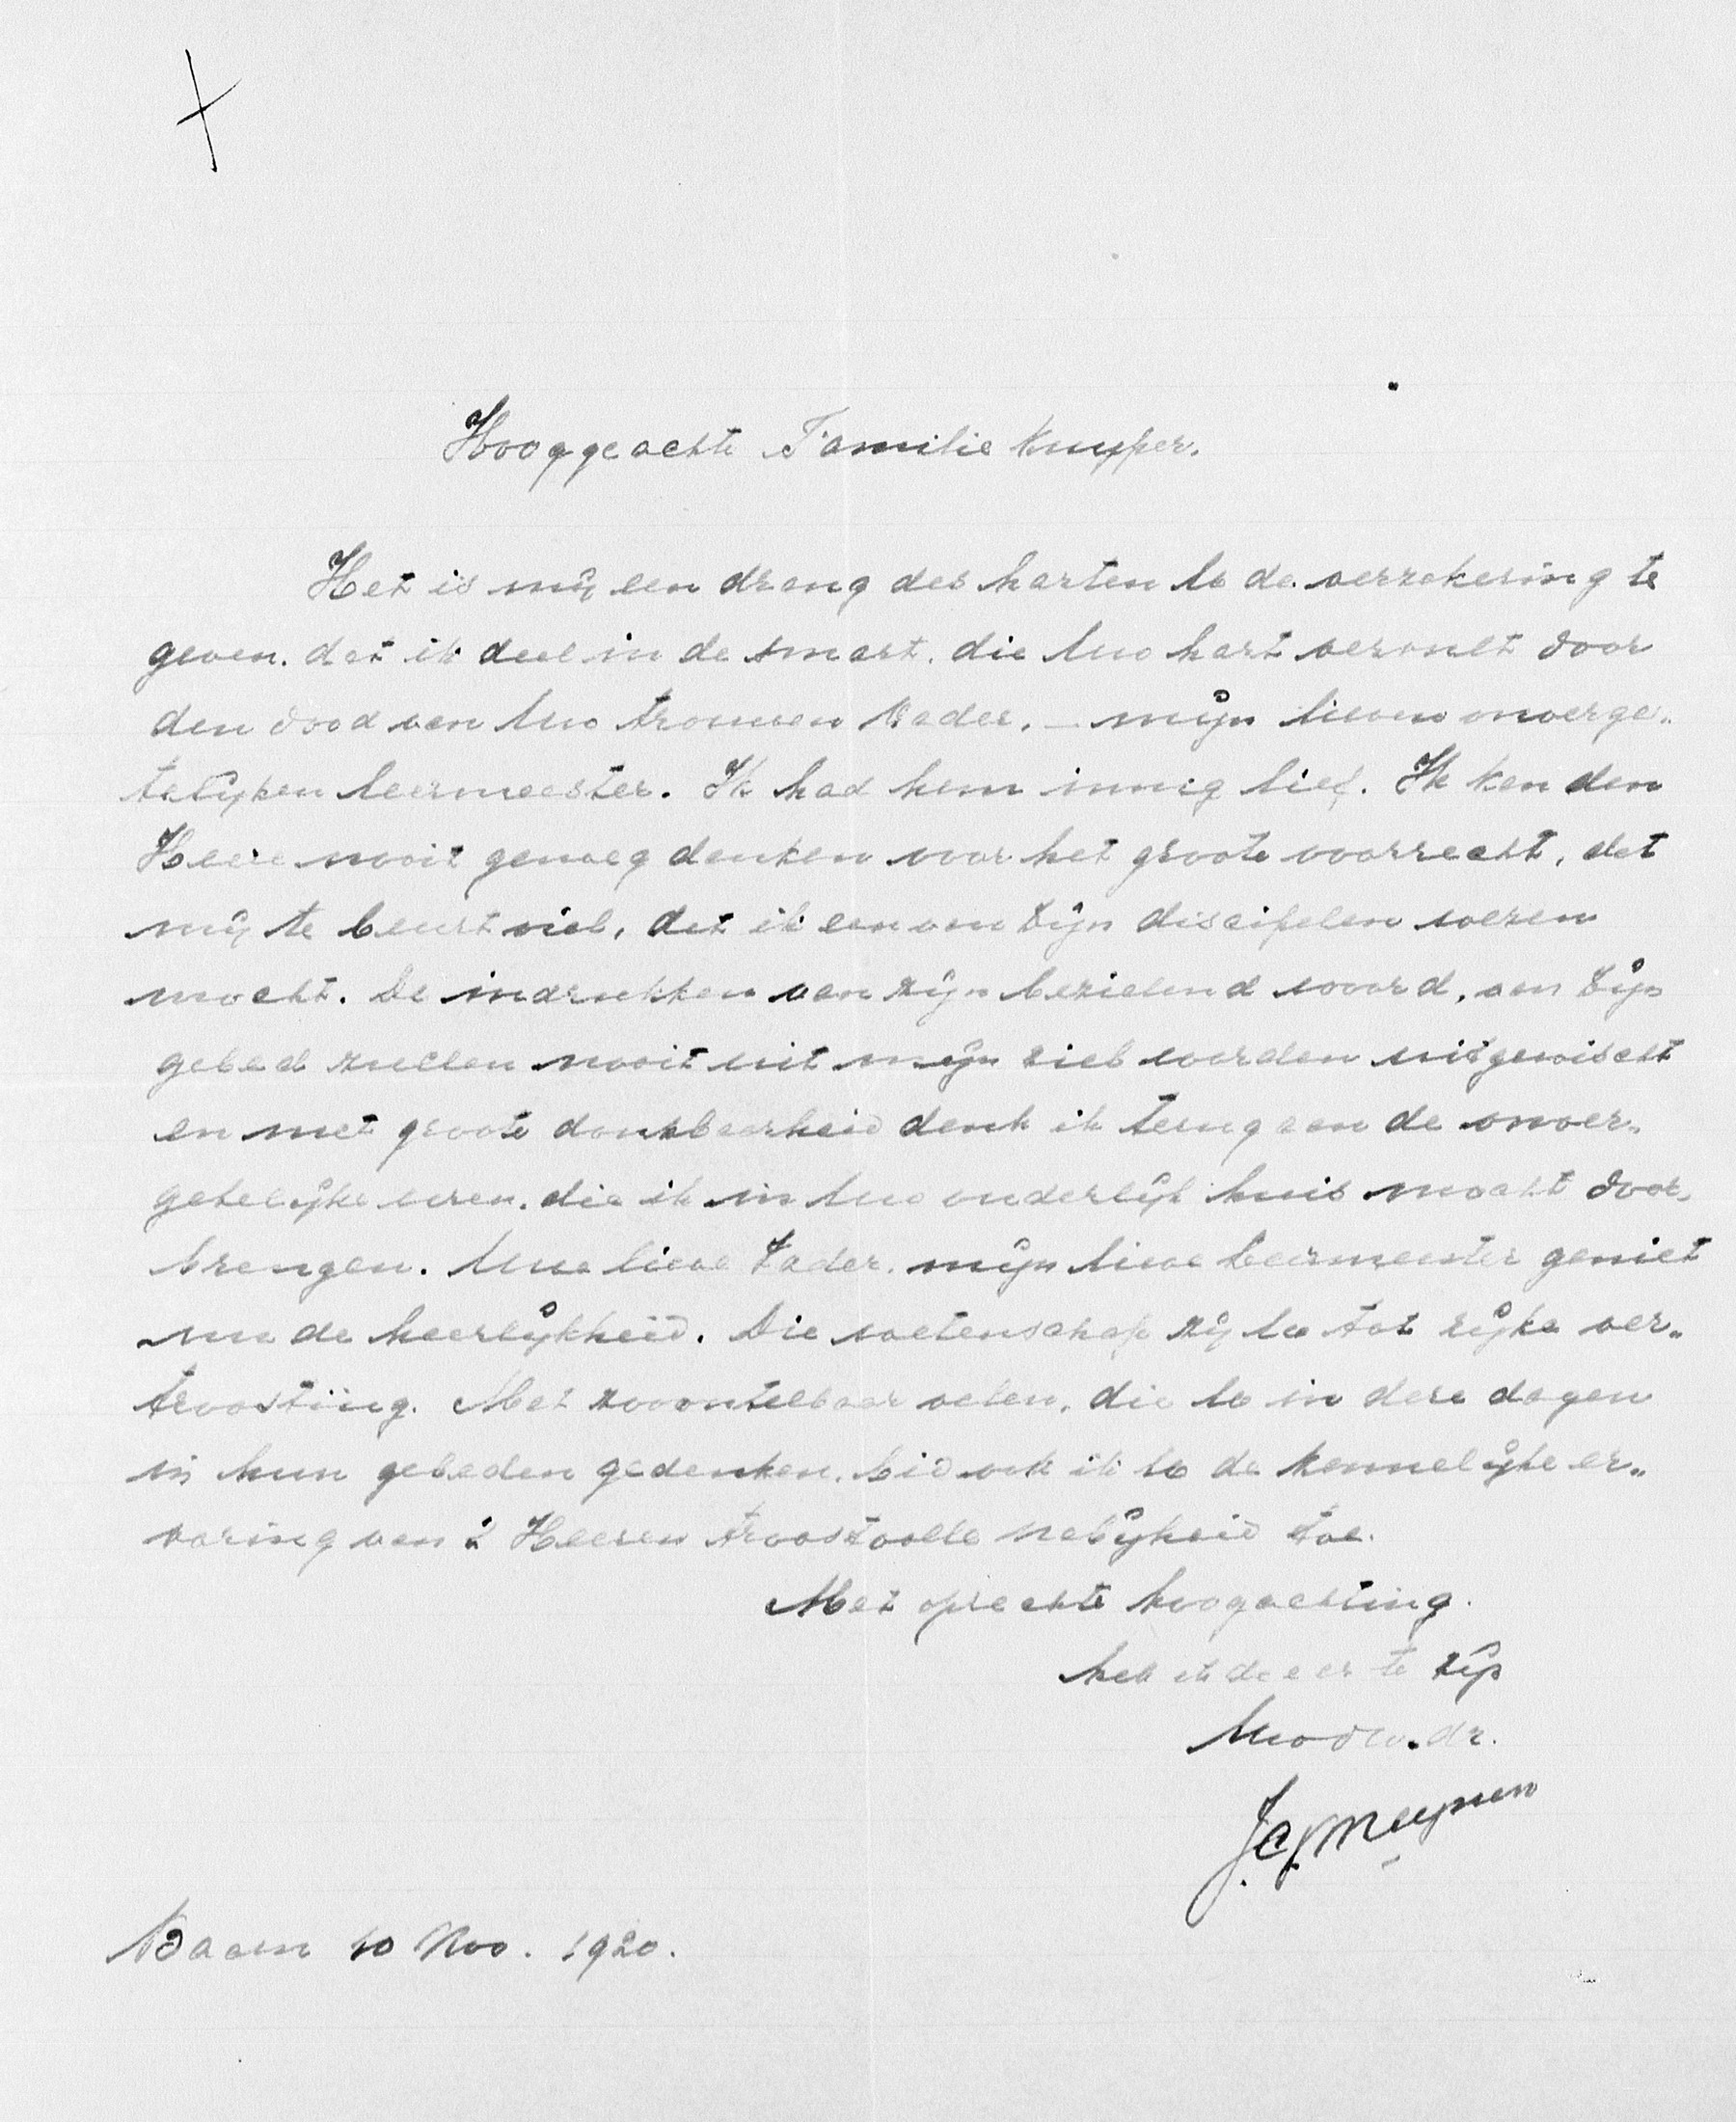 Hooggeachte Familie Kuyper.
Het is mij een drang des harten U de verzekering te
geven, dat ik deel in de smart, die Uw hart vervult door
den dood van Uwe trouwen Vader, – mijn lieven onverge„
telijken leermeester. Ik had hem innig lief. Ik kan den
Heere nooit genoeg danken voor het groote voorrecht, dat
mij te beurt viel, dat ik een van Zijn discipelen wezen
mocht. De indrukken van zijn bezielend woord, van Zijn
gebed zullen nooit uit mijn ziel worden uitgewischt
en met groote dankbaarheid denk ik terug aan de onver„
getelijke uren, die ik in Uw ouderlijk huis mocht door„
brengen. Uwe lieve Vader, mijn lieve leermeester geniet
nu de heerlijkheid. Die wetenschap zij U tot rijke ver„
troosting. Met zoontelbaar velen, die U in deze dagen
in hun gebeden gedenken, bid ook ik U de kennelijke er„
varing van 's Heeren troostvolle nabijheid toe.
Met oprechte hoogachting.
heb ik de eer te zijn
Uwdw. dr.
Baarn 10 Nov. 1920.